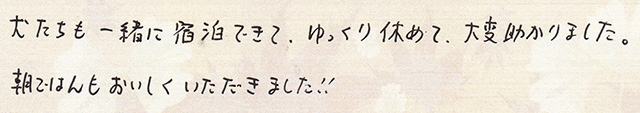 犬たちも一緒に宿泊できて、ゆっくり休めて、大変助かりました。
朝ごはんもおいしくいただきました!!